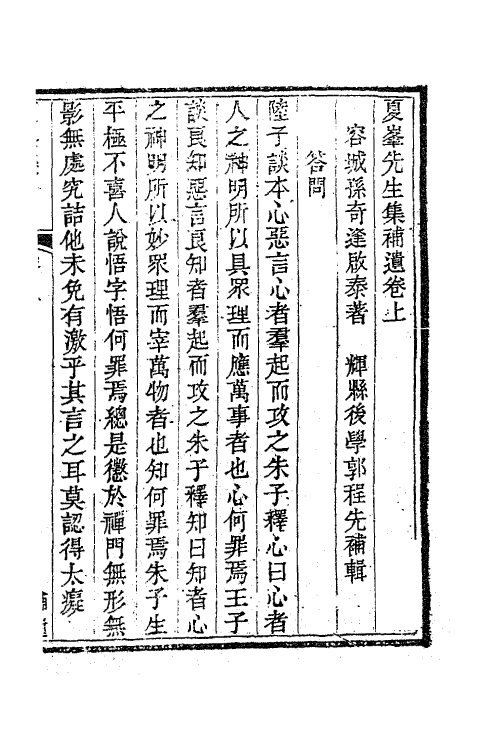 夏峯先生集補遺卷上
容城孫奇逢啟泰著　輝縣後學郭程先補輯
答問
陸子談本心惡言心者羣起而攻之朱子釋心曰心者
人之神明所以具眾理而應萬事者也心何罪焉王子
談良知惡言良知者羣起而攻之朱子釋知曰知者心
之神明所以妙眾理而宰萬物者也知何罪焉朱子生
平極不喜人說悟字悟何罪焉總是懲於禪門無形無
影無處究詰他未免有激乎其言之耳莫認得太癡
補遺